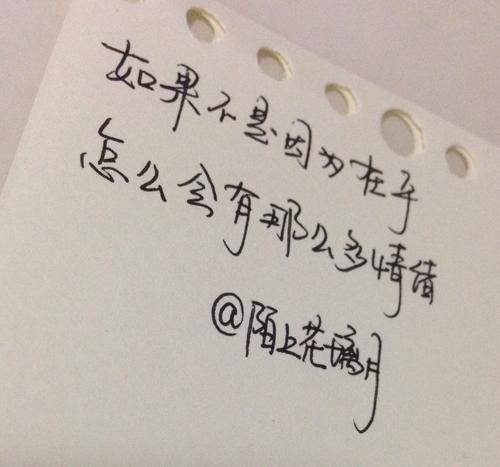 如果不是因为在乎
怎么会有那么多情绪
@陌上花璃月